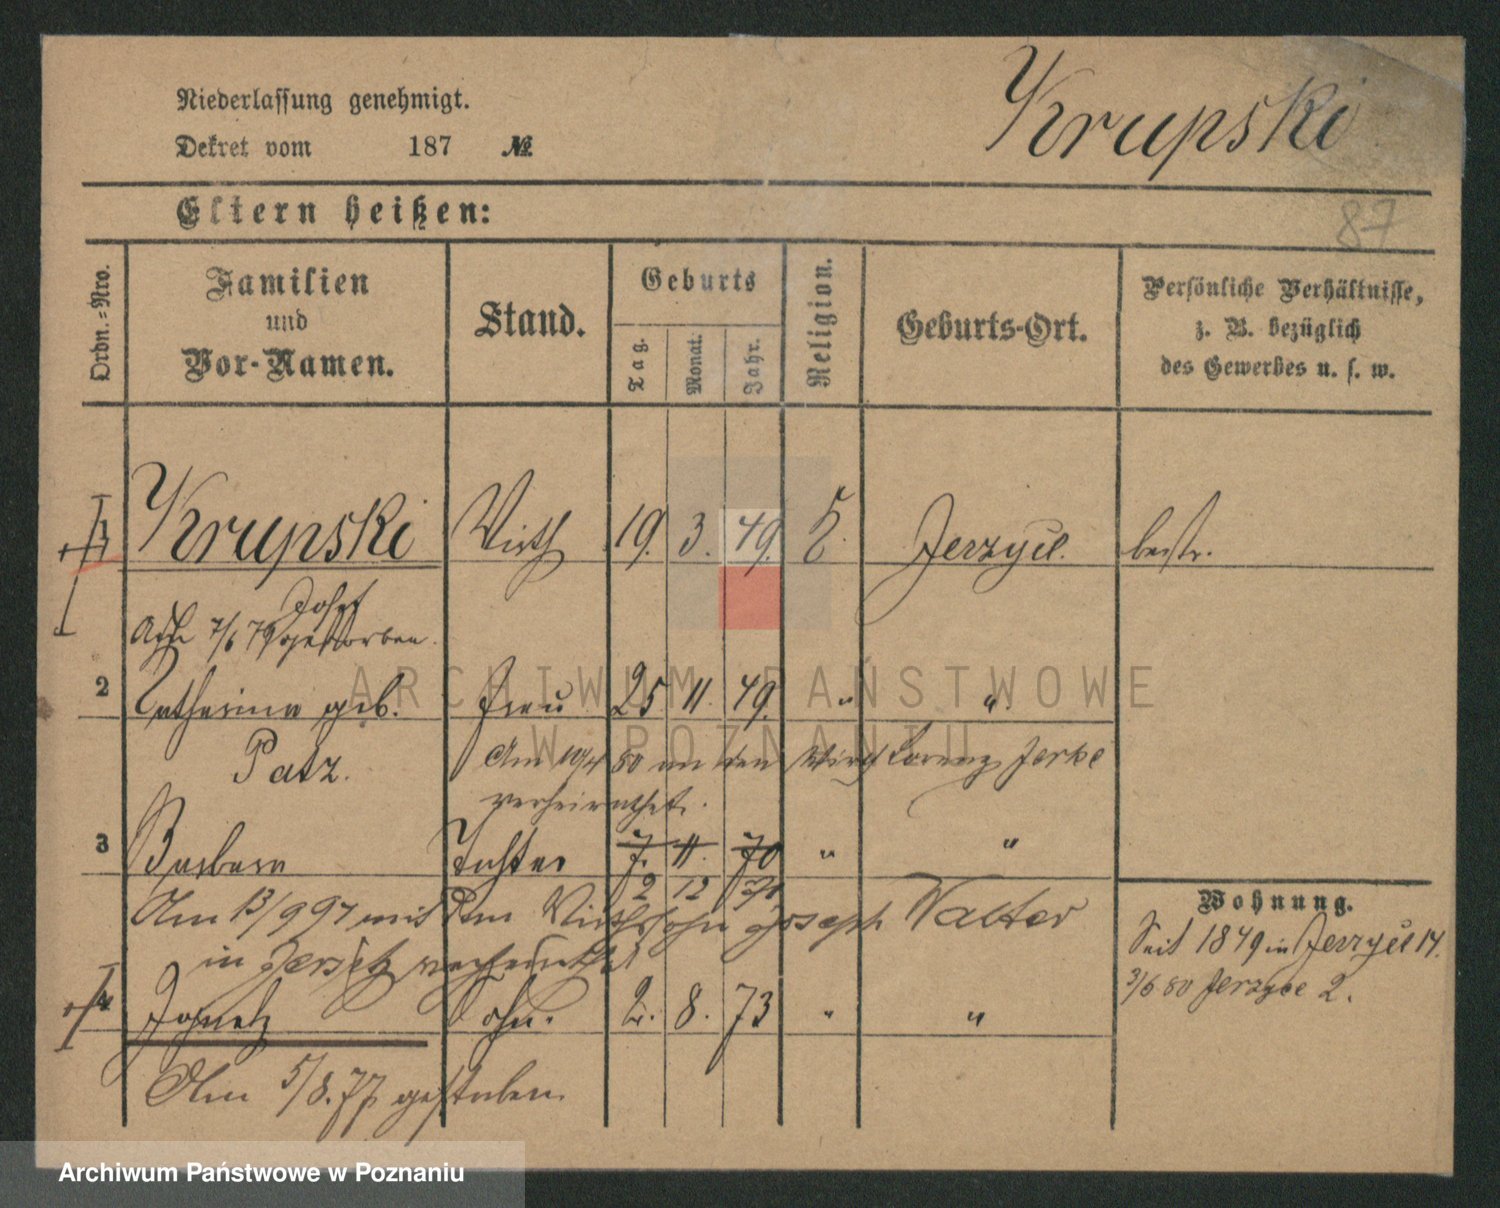 Niederlassung genehmigt.
Dekret vom 187 №
Krupski
87
Eltern heißen:
Ordn.-Nro.
Familien
und
Vor-Namen.
Stand.
Geburts
Tag.
Monat.
Jahr.
Religion.
Geburts-Ort.
Persönliche Verhältnisse,
z. B. bezüglich
des Gewerbes u. s. w.
1 Krupski Wirth 19. 3. 49. K. Jerzyce.
Josef
7/6 79 gestorben.
2 Catharina geb. Frau 25 11. 49. " "
Patz.
Am 80 an den Wirth Lorenz Jerke
verheirathet.
3 Barbara Tochter 7. 11. 70 " "
2 12 71
Am 13/9 97 mit dem Wirthssohn Joseph Walter
in Jersitz verheirathet
4 Ignatz Sohn. 2. 8. 73 " "
Am 5/8.77 gestorben.
Wohnung.
Seit 1849 in Jerzyce 14.
3/6 80 Jerzyce 2.
ARCHIWUM PAŃSTWOWE
W POZNANIU
Archiwum Państwowe w Poznaniu